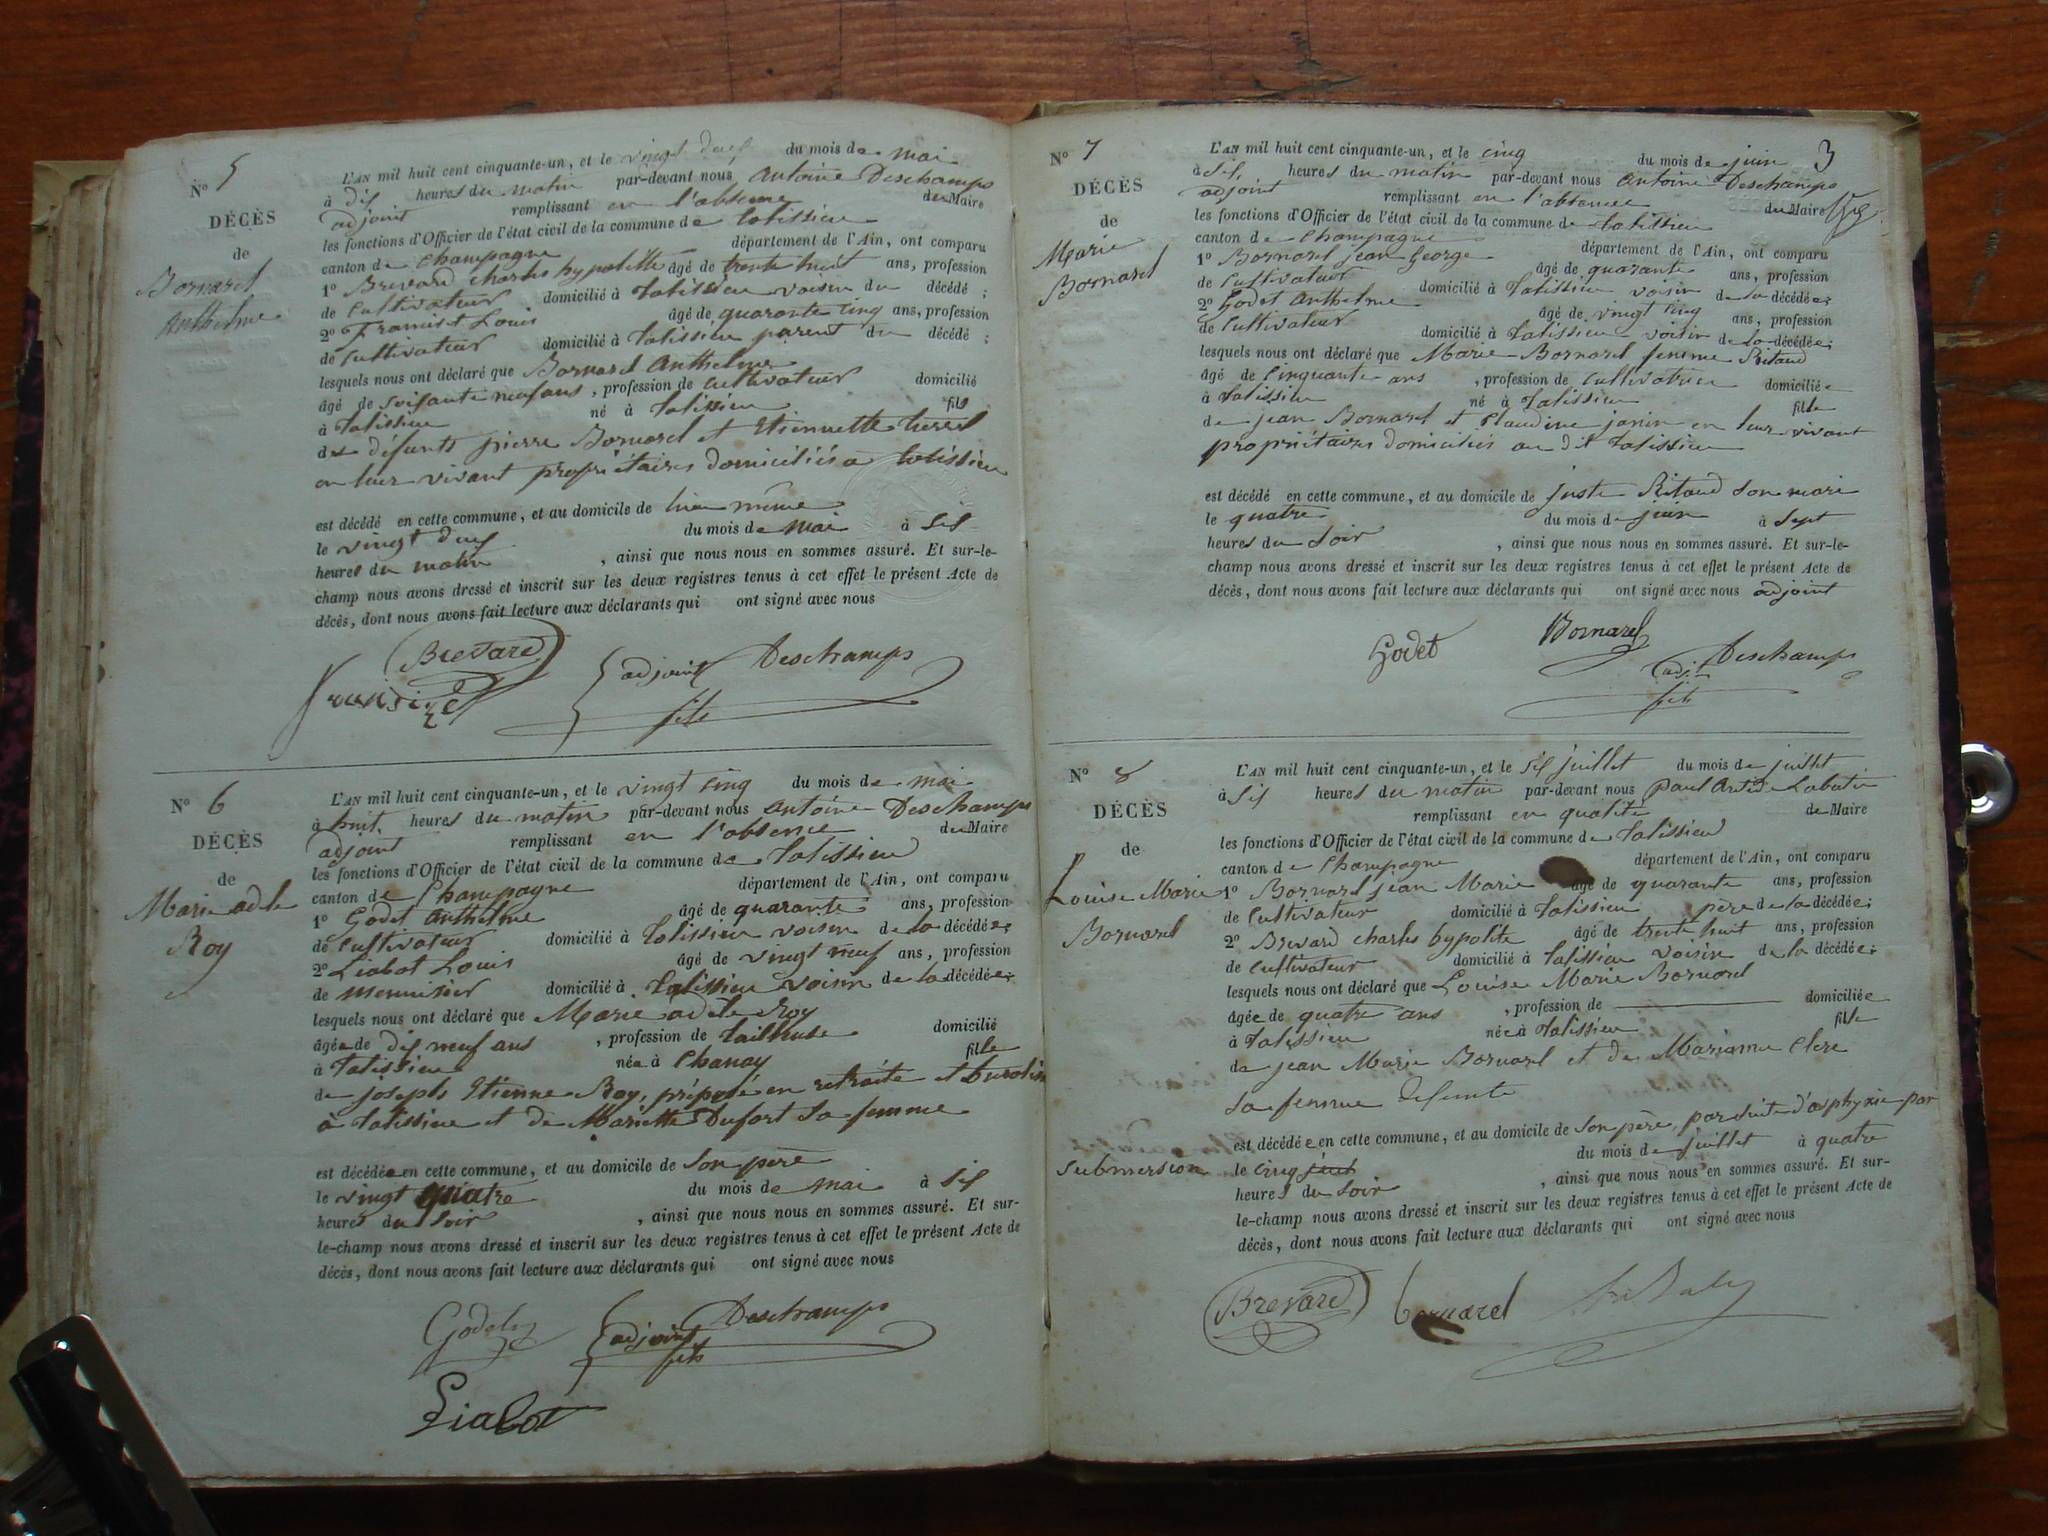 N° 5
DÉCÈS
de
Bornarel
Anthelme
L'AN mil huit cent cinquante-un, et le vingt deux du mois de mai
à dix heures du matin par-devant nous Antoine Deschamps
adjoint remplissant en l'absence du Maire
les fonctions d'Officier de l'état civil de la commune de talissieu
canton de Champagne département de l'Ain, ont comparu
1° Brevard charles hypolitte âgé de trente huit ans, profession
de Cultivateur domicilié à talissieu voisin du décédé ;
2° Francist Louis âgé de quarante cinq ans, profession
de Cultivateur domicilié à talissieu parent du décédé ;
lesquels nous ont déclaré que Bornarel Anthelme
âgé de soixante neuf ans, profession de Cultivateur domicilié
à talissieu né à talissieu fils
de défunts pierre Bornarel et Etiennette
en leur vivant propriétaires domiciliés à talissieu
est décédé en cette commune, et au domicile de lui même
le vingt deux du mois de mai à six
heures du matin, ainsi que nous nous en sommes assuré. Et sur-le-
champ nous avons dressé et inscrit sur les deux registres tenus à cet effet le présent Acte de
décès, dont nous avons fait lecture aux déclarants qui ont signé avec nous
Brevard
adjoint Deschamps
fils
N° 6
DÉCÈS
de
Marie adèle
Roy
L'AN mil huit cent cinquante-un, et le vingt cinq du mois de mai
à huit heures du matin par-devant nous Antoine Deschamps
adjoint remplissant en l'absence du Maire
les fonctions d'Officier de l'état civil de la commune de talissieu
canton de Champagne département de l'Ain, ont comparu
1° Godet Anthelme âgé de quarante ans, profession
de Cultivateur domicilié à talissieu voisin de la décédée ;
2° Liabot Louis âgé de vingt neuf ans, profession
de menuisier domicilié à talissieu voisin de la décédée ;
lesquels nous ont déclaré que Marie adèle Roy
âgée de dix neuf ans, profession de tailleuse domicilié
à talissieu née à Chanay fille
de joseph Etienne Roy, préposé en retraite et buraliste
à talissieu et de Mariette Dufort sa femme
est décédée en cette commune, et au domicile de son père
le vingt quatre du mois de mai à six
heures du soir, ainsi que nous nous en sommes assuré. Et sur-
le-champ nous avons dressé et inscrit sur les deux registres tenus à cet effet le présent Acte de
décès, dont nous avons fait lecture aux déclarants qui ont signé avec nous
Godet
adjoint Deschamps
fils
Liabot
3
N° 7
DÉCÈS
de
Marie
Bornarel
L'AN mil huit cent cinquante-un, et le cinq du mois de juin
à six heures du matin par-devant nous Antoine Deschamps
adjoint remplissant en l'absence du Maire
les fonctions d'Officier de l'état civil de la commune de talissieu
canton de Champagne département de l'Ain, ont comparu
1° Bornarel jean George âgé de quarante ans, profession
de Cultivateur domicilié à talissieu voisin de la décédée ;
2° Godet Anthelme âgé de vingt cinq ans, profession
de Cultivateur domicilié à talissieu voisin de la décédée ;
lesquels nous ont déclaré que Marie Bornarel femme Ritaud
âgé de Cinquante ans, profession de Cultivatrice domiciliée
à talissieu né à talissieu fille
de jean Bornarel et Claudine janin en leur vivant
propriétaires domiciliés au dit talissieu
est décédé en cette commune, et au domicile de juste Ritaud son mari
le quatre du mois de juin à sept
heures du soir, ainsi que nous nous en sommes assuré. Et sur-le-
champ nous avons dressé et inscrit sur les deux registres tenus à cet effet le présent Acte de
décès, dont nous avons fait lecture aux déclarants qui ont signé avec nous adjoint
Godet Bornarel
adj. Deschamps
fils
N° 8
DÉCÈS
de
Louise Marie
Bornarel
L'AN mil huit cent cinquante-un, et le six juillet du mois de juillet
à six heures du matin par-devant nous Paul
remplissant en qualité de Maire
les fonctions d'Officier de l'état civil de la commune de talissieu
canton de Champagne département de l'Ain, ont comparu
1° Bornarel jean Marie âgé de quarante ans, profession
de Cultivateur domicilié à talissieu père de la décédée ;
2° Brevard charles hypolite âgé de trente huit ans, profession
de Cultivateur domicilié à talissieu voisin de la décédée ;
lesquels nous ont déclaré que Louise Marie Bornarel
âgée de quatre ans, profession de domiciliée
à talissieu née à talissieu fille
de jean Marie Bornarel et de Marianne Clerc
sa femme défunte
est décédée en cette commune, et au domicile de son père, par suite d'asphyxie par
submersion le cinq juin du mois de juillet à quatre
heures du soir, ainsi que nous nous en sommes assuré. Et sur-
le-champ nous avons dressé et inscrit sur les deux registres tenus à cet effet le présent Acte de
décès, dont nous avons fait lecture aux déclarants qui ont signé avec nous
Brevard bornarel